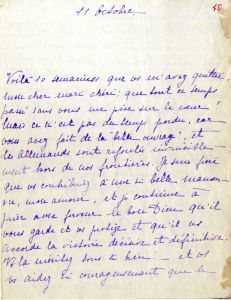 45
11 Octobre.
Voilà 10 semaines que vs m'avez quittée,
mon cher mari chéri : que tout ce temps
passé sans vous me pèse sur le cœur !
Mais ce n'est pas du temps perdu, car
vous avez fait de la belle ouvrage, et
les Allemands sont refoulés
ment hors de nos frontières. Je suis fière
que vs contribuiez à une si belle manœu-
vre, mon amour, et je continue à
prier avec ferveur le bon Dieu qu'il
vous garde et vs protège et qu'il vs
accorde la victoire décisive et définitive.
Vs la méritez tous si bien ! — et vs
vs aidez si courageusement que le